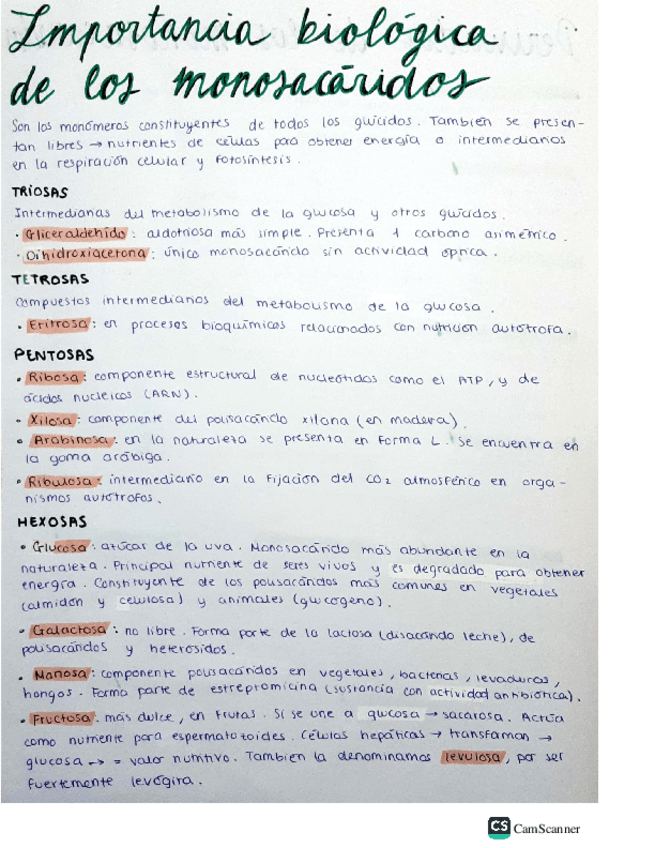 Importancia biológica
de los monosacáridos
Son los monómeros constituyentes de todos los glúcidos. También se presen-
tan libres → nutrientes de células para obtener energía o intermedianos
en la respiración celular y fotosíntesis.
TRIOSAS
Intermedianas del metabolismo de la glucosa y otros glúcidos.
· Gliceraldehído: aldotriosa más simple. Presenta 1 carbono asimétrico.
· Dihidroxiacetona: único monosacárido sin actividad óptica.
TETROSAS
Compuestos intermedianos del metabolismo de la glucosa.
· Eritrosa: en procesos bioquímicos relacionados con nutrición autótrofa.
PENTOSAS
· Ribosa: componente estructural de nucleótidos como el ATP, y de
ácidos nucleicos (ARN).
· Xilosa: componente del polisacárido xilana (en madera).
· Arabinosa: en la naturaleza se presenta en forma L. Se encuentra en
la goma arábiga.
· Ribulosa: intermediario en la fijación del CO₂ atmosférico en orga-
nismos autótrofos.
HEXOSAS
· Glucosa: azúcar de la uva. Monosacárido más abundante en la
naturaleza. Principal nutriente de seres vivos y es degradado para obtener
energía. Constituyente de los polisacáridos más comunes en vegetales
(almidón y celulosa) y animales (glucógeno).
· Galactosa: no libre. Forma parte de la lactosa (disacárido leche), de
polisacáridos y heterósidos.
· Manosa: componente polisacáridos en vegetales, bacterias, levaduras,
hongos. Forma parte de estrepromicina (sustancia con actividad antibiótica).
· Fructosa: más dulce, en frutas. Si se une a glucosa → sacarosa. Actúa
como nutriente para espermatozoides. Células hepáticas → transforman →
glucosa → = valor nutritivo. También la denominamos levulosa, por ser
fuertemente levógira.
CS CamScanner